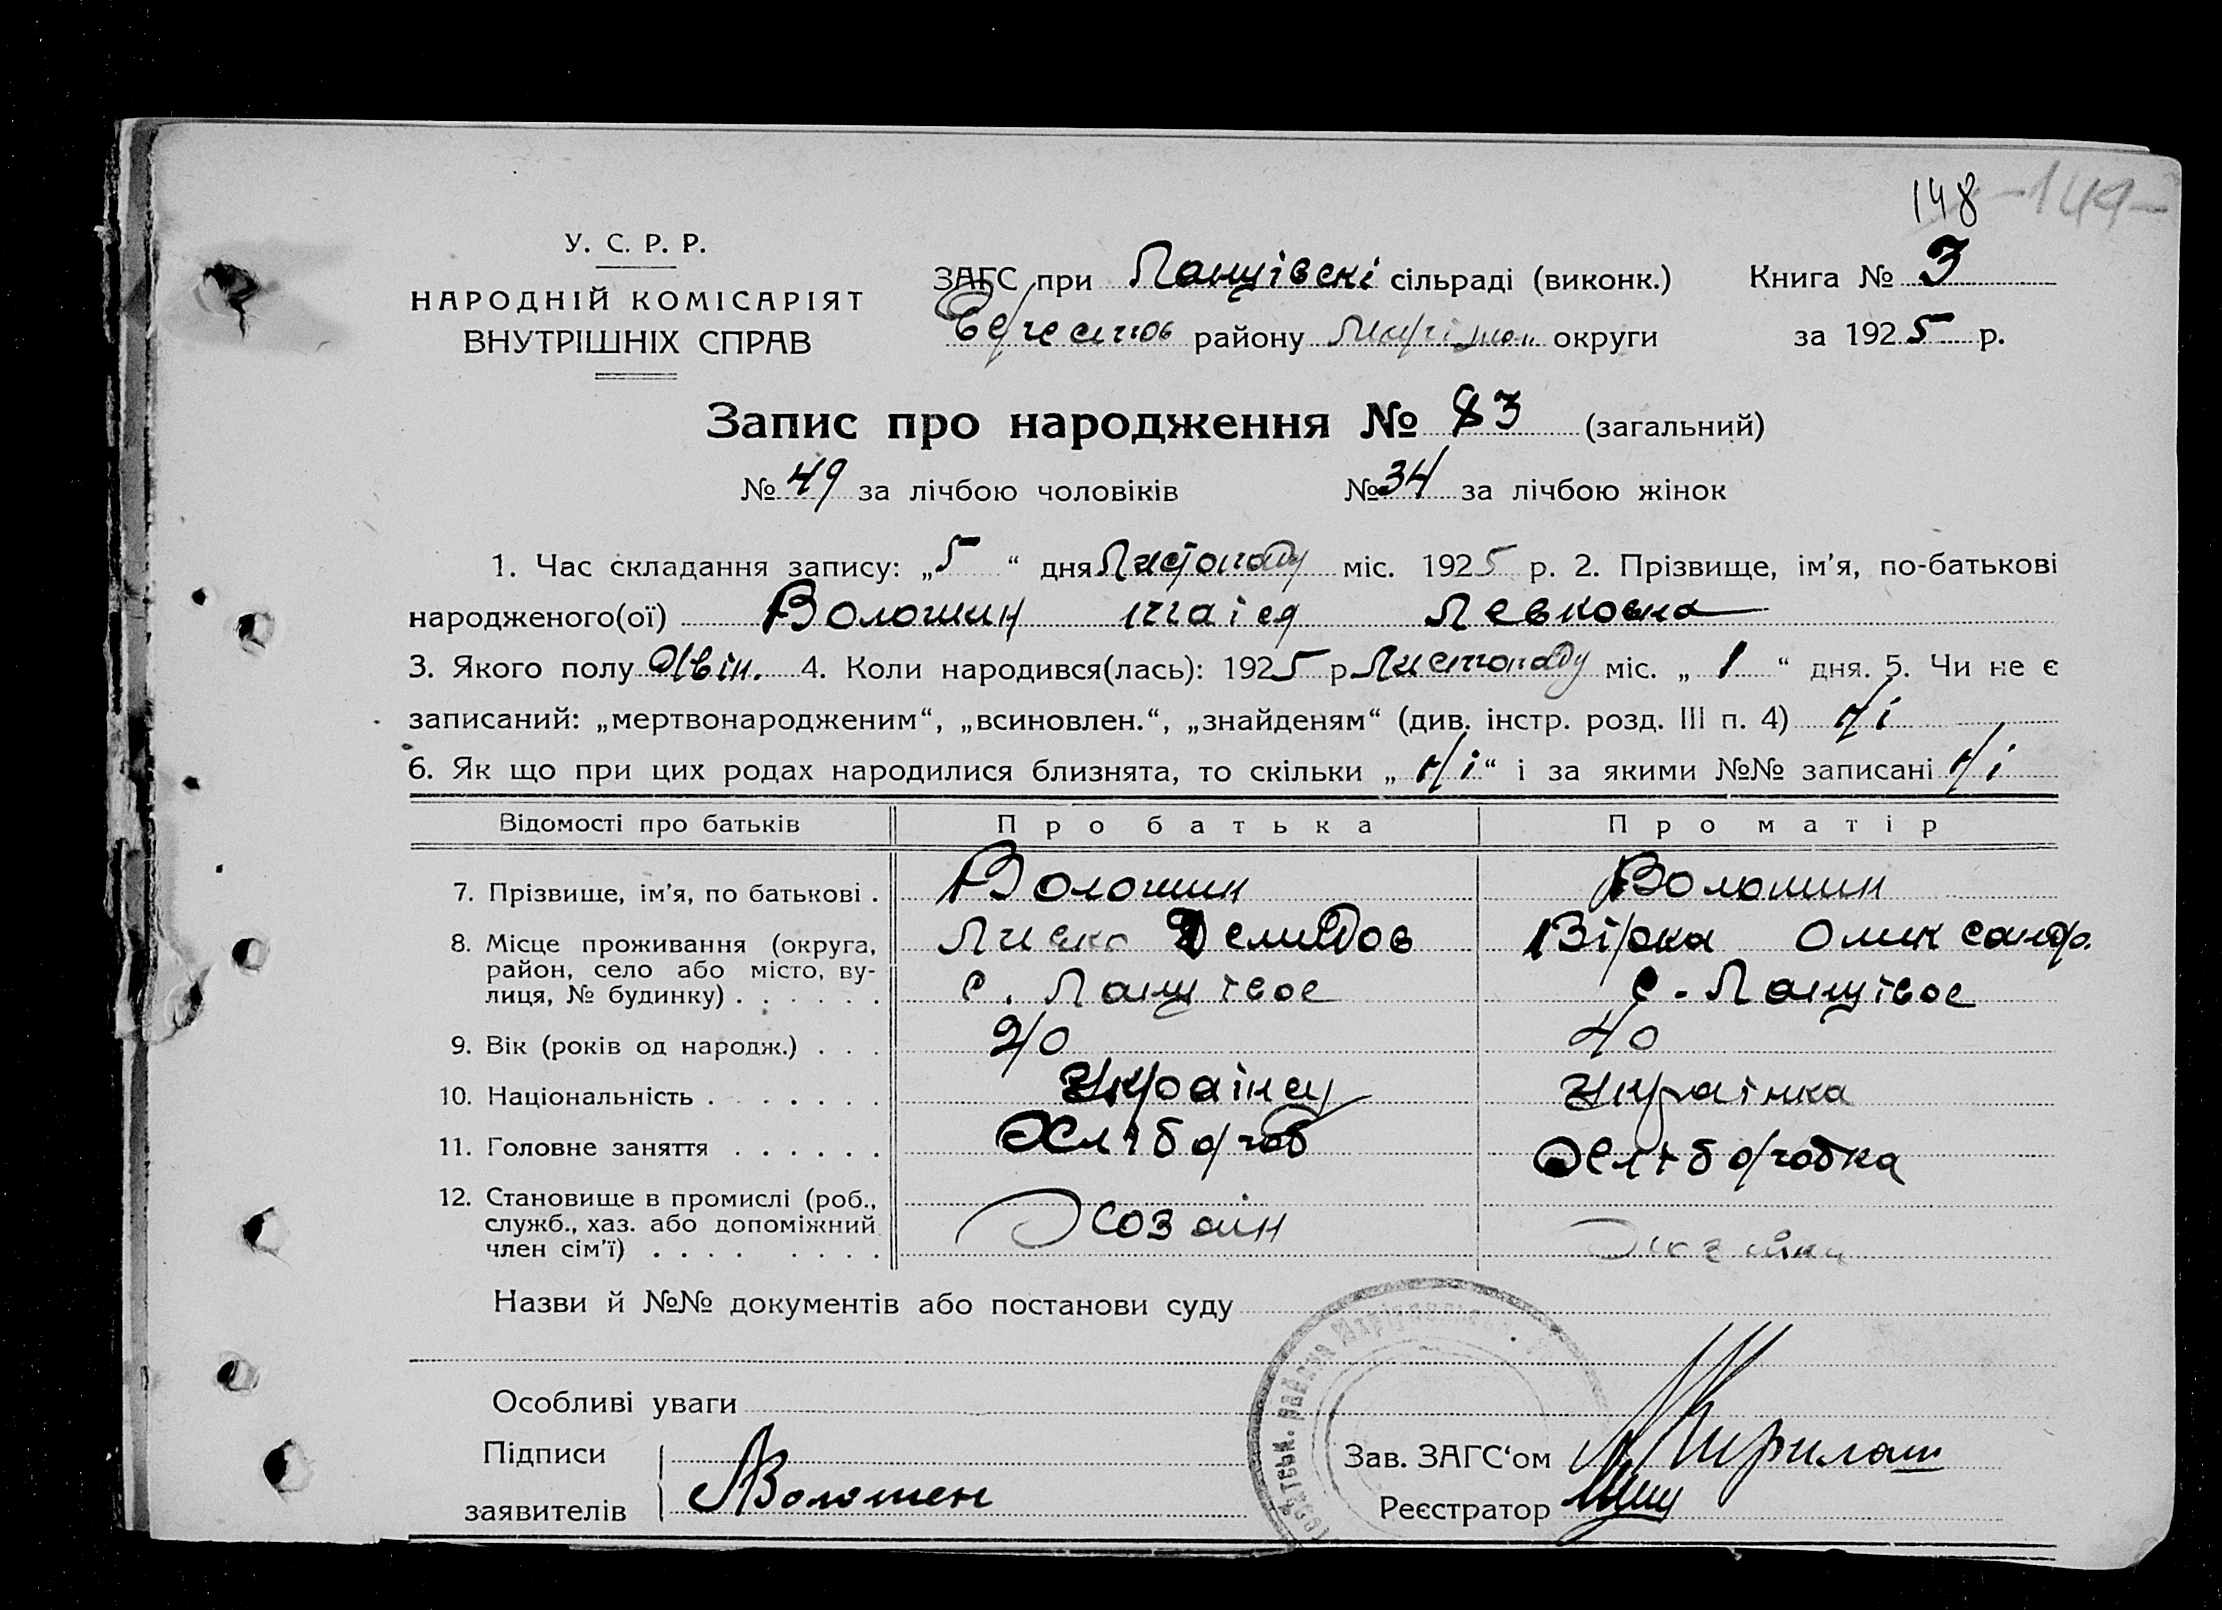 148 -149-
У. С. Р. Р.
НАРОДНІЙ КОМІСАРІЯТ
ВНУТРІШНІХ СПРАВ
ЗАГС при сільраді (виконк.) Книга № 3
району округи за 1925 р.
Запис про народження № 83 (загальний)
№ 49 за лічбою чоловіків № 34 за лічбою жінок
1. Час складання запису: „5“ дня Листопаду міс. 1925 р. 2. Прізвище, ім’я, по-батькові
народженого(ої) Волошин Левковна
3. Якого полу Дівін. 4. Коли народився(лась): 1925 р Листопаду міс. „1“ дня. 5. Чи не є
записаний: „мертвонародженим“, „всиновлен.“, „знайденям“ (див. інстр. розд. III п. 4) Ні
6. Як що при цих родах народилися близнята, то скільки „Ні“ і за якими №№ записані Ні
Відомості про батьків Про батька Про матір
7. Прізвище, ім’я, по батькові . Волошин Волошин
8. Місце проживання (округа, Демидов Вірка Олександр.
район, село або місто, ву-
лиця, № будинку) . . . . . . с. с.
9. Вік (років од народж.) . . . 40
10. Національність . . . . . . . Українец Українка
11. Головне заняття . . . . . . Хлібороб Хлiборобка
12. Становище в промислі (роб.,
служб., хаз. або допоміжний Хозаін
член сім’ї) . . . . . . . .
Назви й №№ документів або постанови суду
Особливі уваги
Підписи Зав. ЗАГС‘ом
заявителів Волошен Реєстратор